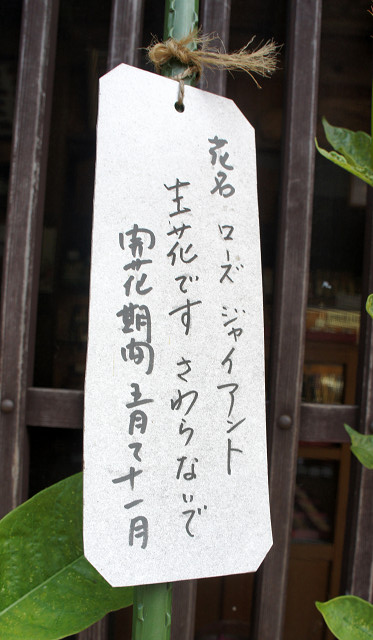 花名 ローズ ジャイアント
生花です さわらないで
開花期間 五月〜十一月